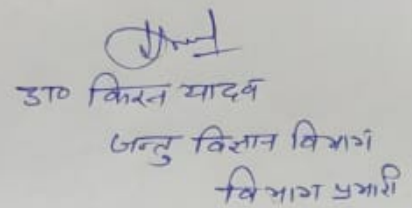 डा० किरन यादव
जन्तु विज्ञान विभाग
विभाग प्रभारी